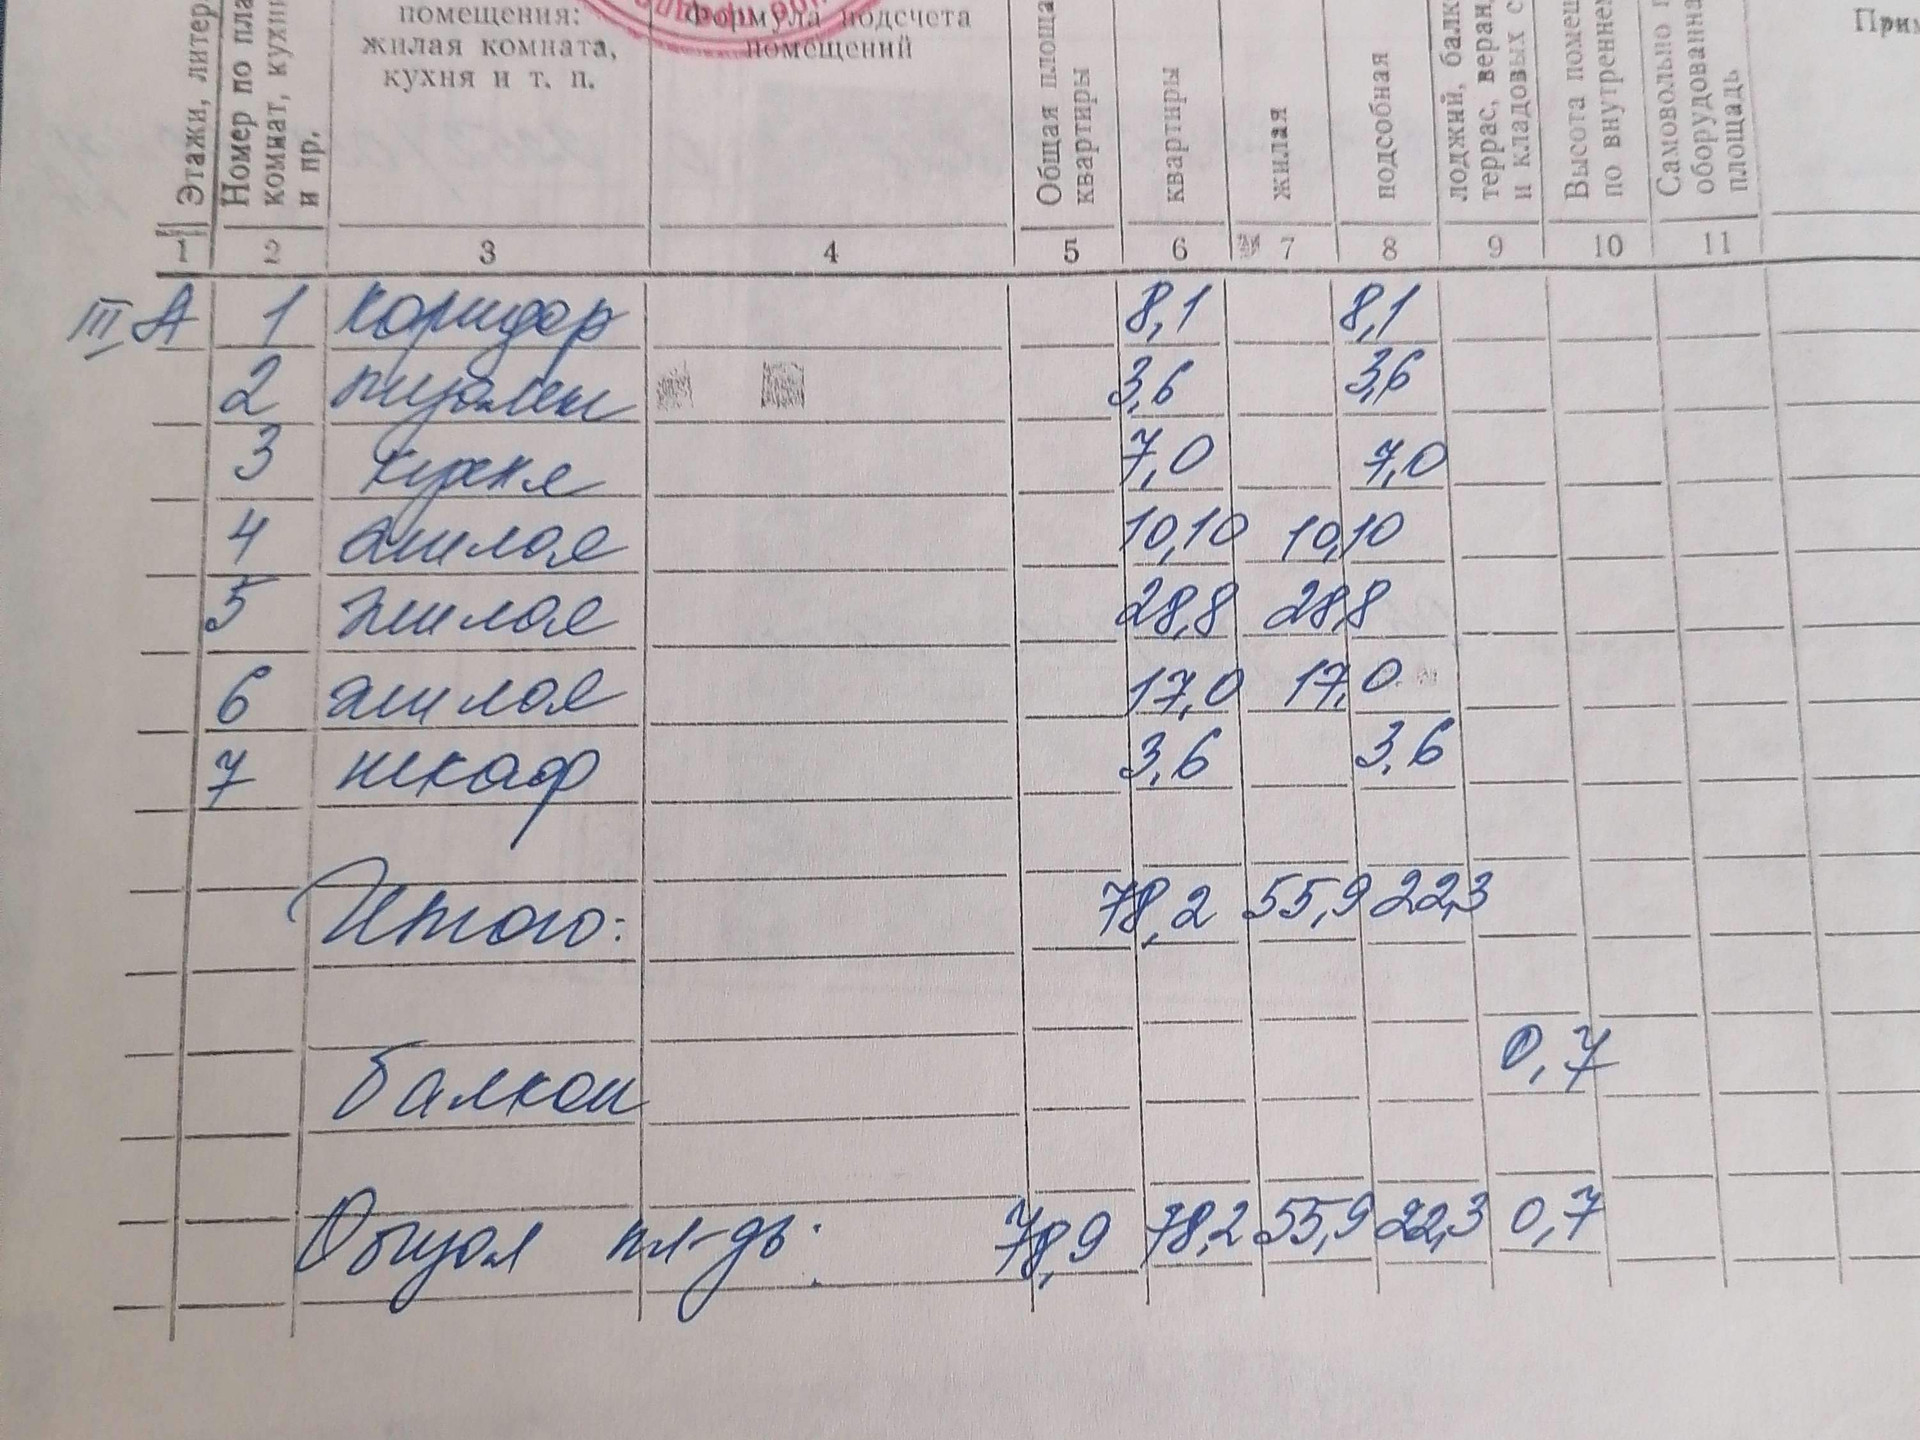 Этажи, литер.
Номер по пла
комнат, кухни
и пр.
помещения:
жилая комната,
кухня и т. п.
Формула подсчета
помещений
Общая площа
квартиры
квартиры
жилая
подсобная
лоджий, балк
террас, веран
и кладовых с
Высота помещ
по внутреннем
Самовольно п
оборудованна
площадь
Прим
1 2 3 4 5 6 7 8 9 10 11
III А 1 коридор 8,1 8,1
2 2 3,6 3,6
3 кухня 7,0 7,0
4 жилая 10,10 10,10
5 жилая 28,8 28,8
6 жилая 17,0 17,0
7 шкаф 3,6 3,6
Итого: 78,2 55,9 22,3
Балкон 0,7
Общая пл-дь: 78,9 78,2 55,9 22,3 0,7